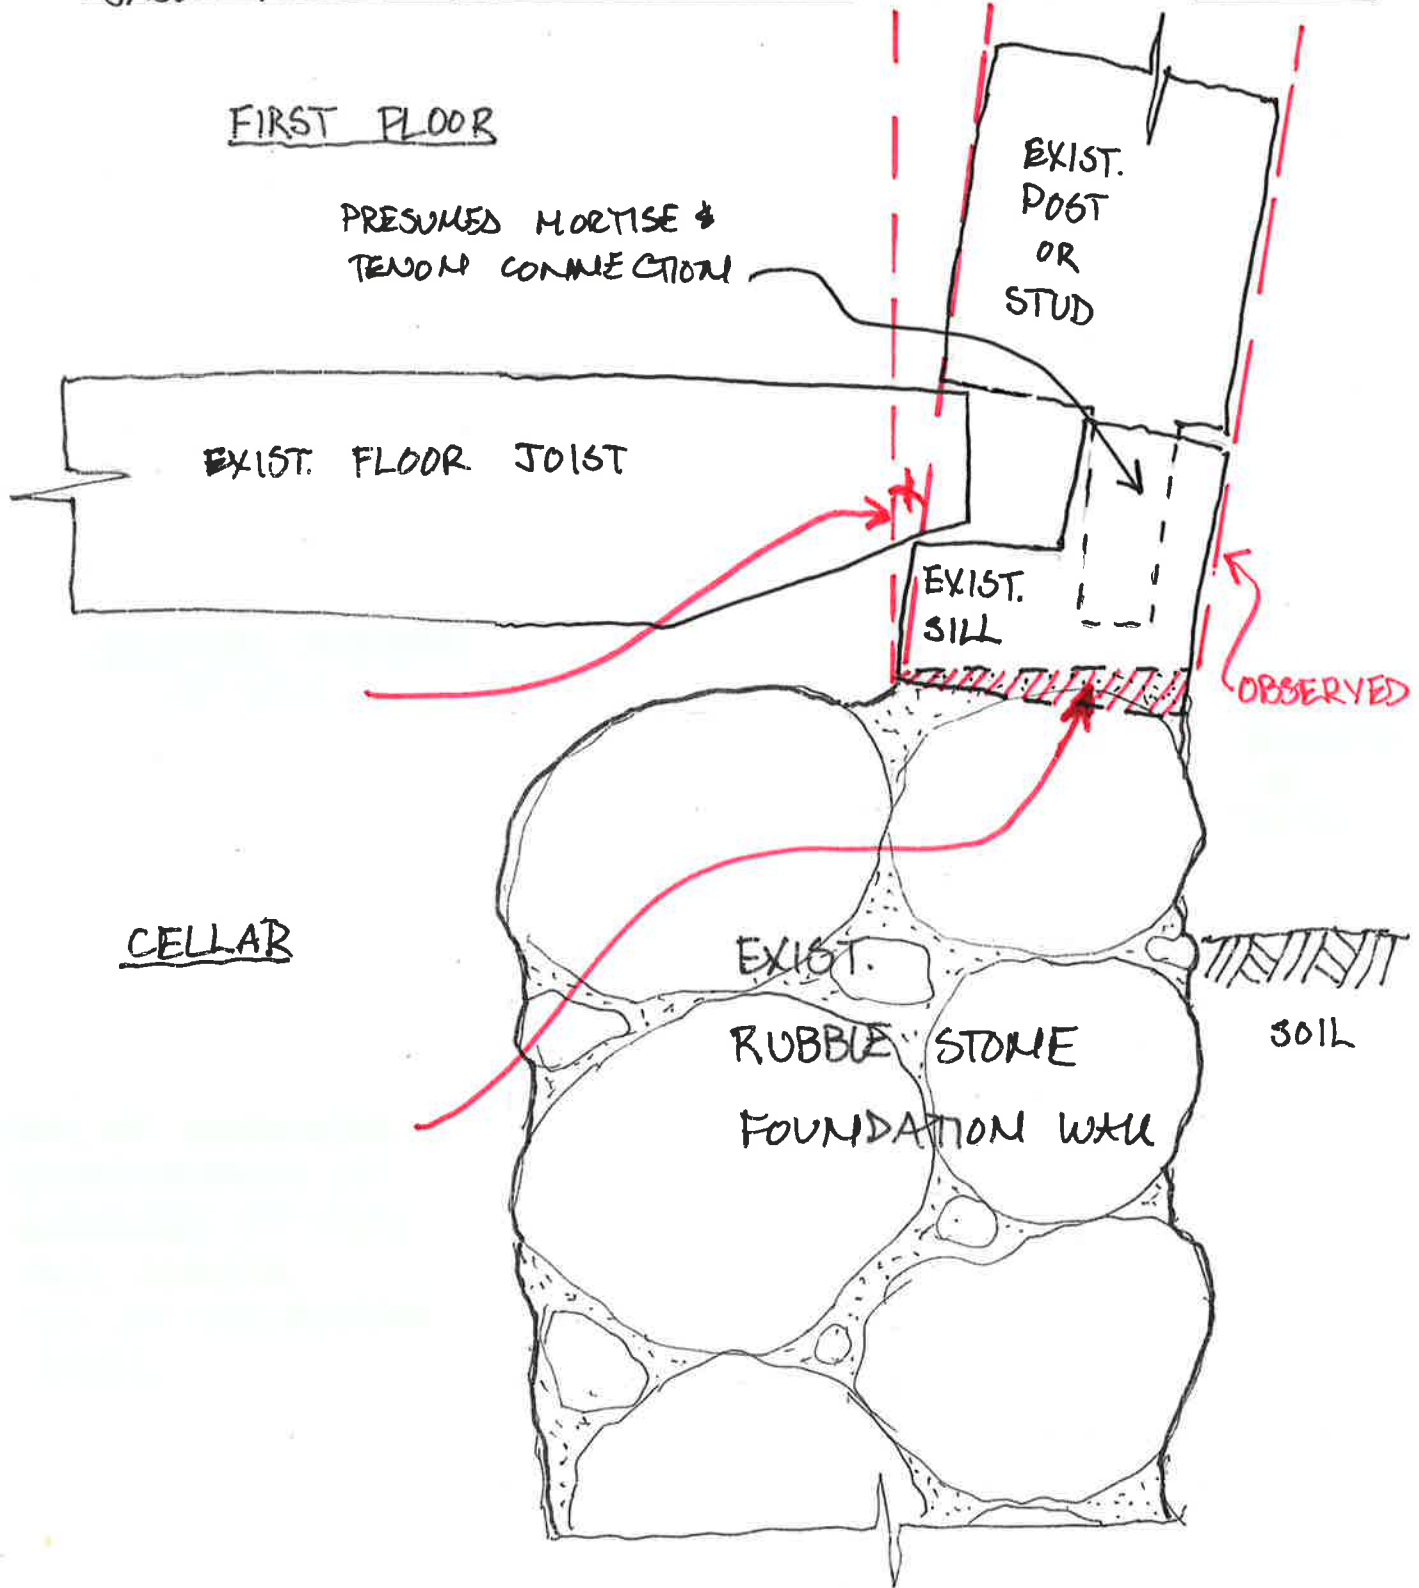 FIRST FLOOR
PRESUMED MORTISE &
TENON CONNECTION
EXIST.
POST
OR
STUD
EXIST. FLOOR JOIST
EXIST.
SILL
OBSERVED
CELLAR
EXIST.
RUBBLE STONE
FOUNDATION WALL
SOIL